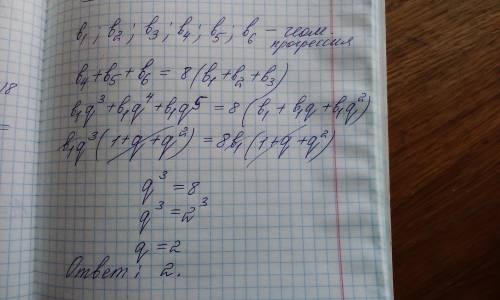 b₁; b₂; b₃; b₄; b₅; b₆ – геом.
прогрессия
18
b₄+b₅+b₆ = 8(b₁+b₂+b₃)
b₁q³+b₁q⁴+b₁q⁵ = 8(b₁+b₁q+b₁q²)
=
b₁q³(1+q+q²) = 8b₁(1+q+q²)
q³ = 8
q³ = 2³
q = 2
Ответ: 2.